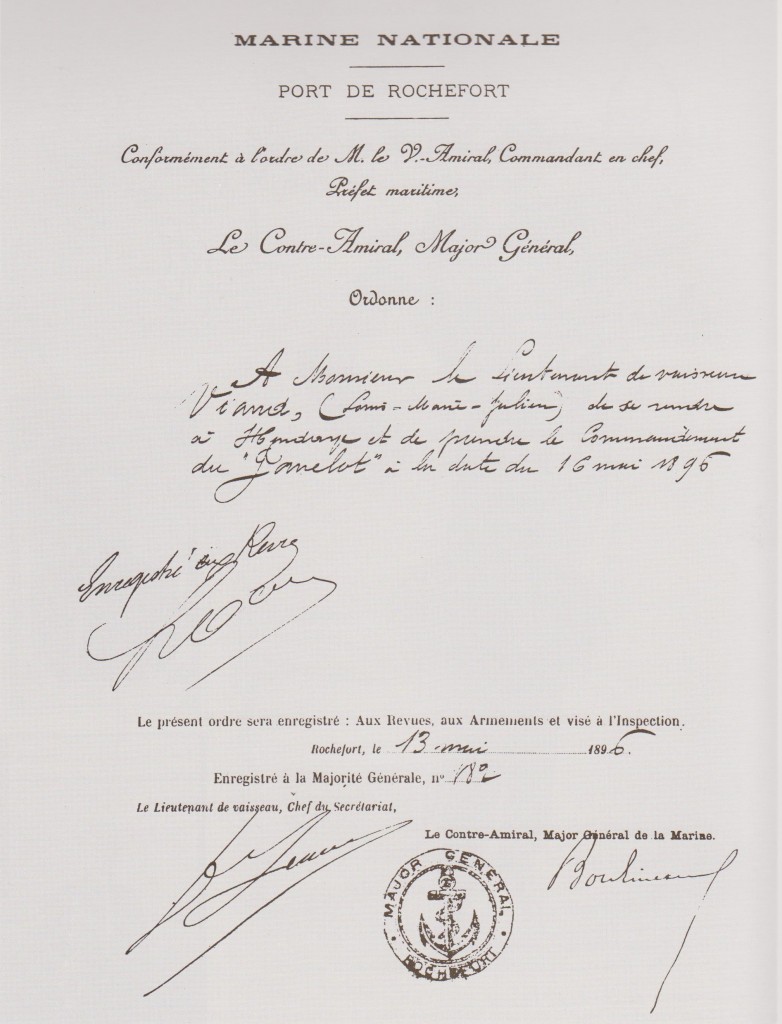 MARINE NATIONALE
PORT DE ROCHEFORT
Conformément à l'ordre de M. le V.-Amiral, Commandant en chef,
Préfet maritime,
Le Contre-Amiral, Major Général,
Ordonne :
A Monsieur le Lieutenant de vaisseau
Viaud, (Louis-Marie-Julien) de se rendre
à Hendaye et de prendre le Commandement
du "Javelot" à la date du 16 mai 1896
Enregistré aux Revues
Le présent ordre sera enregistré : Aux Revues, aux Armements et visé à l'Inspection.
Rochefort, le 13 mai 1896.
Enregistré à la Majorité Générale, no 182
Le Lieutenant de vaisseau, Chef du Secrétariat,
Le Contre-Amiral, Major Général de la Marine.
MAJOR GENERAL
ROCHEFORT